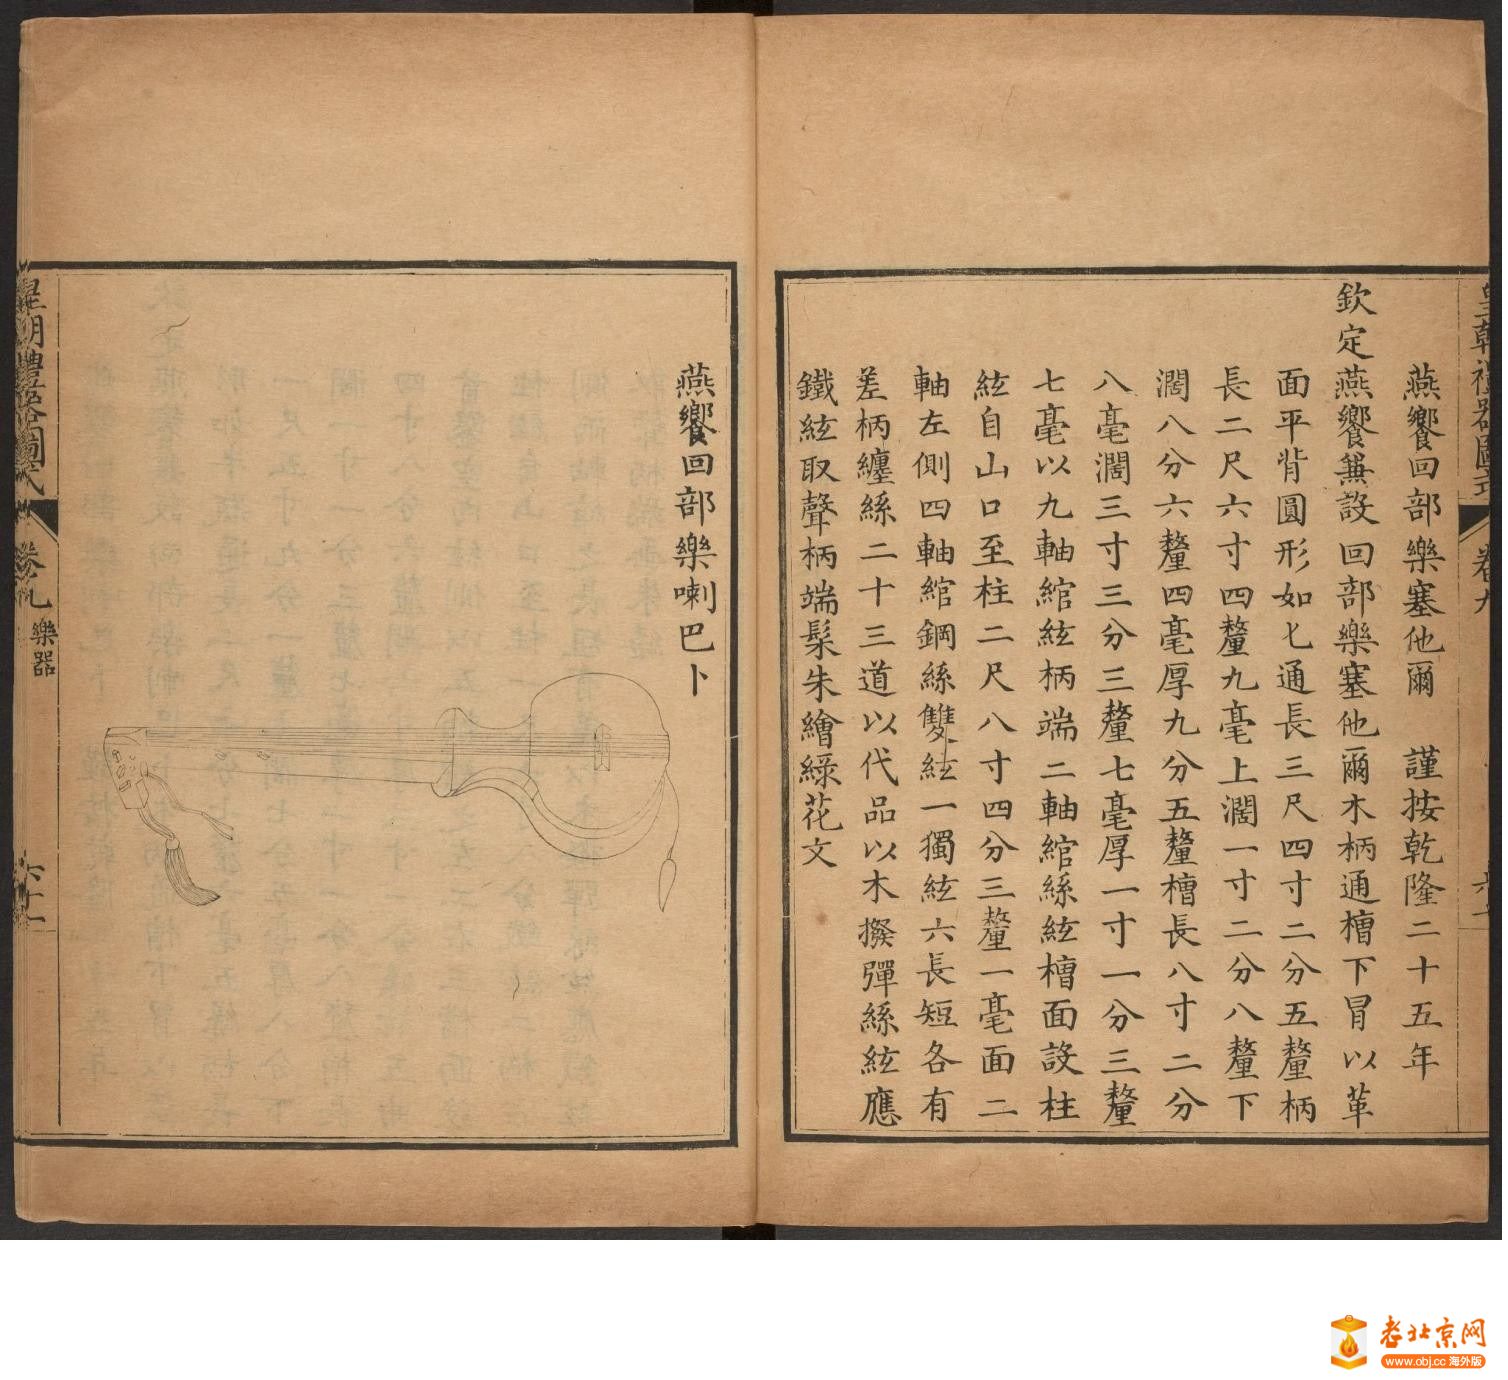 皇朝禮器圖式 卷九
燕饗回部樂塞他爾 謹按乾隆二十五年
欽定燕饗兼設回部樂塞他爾木柄通槽下冒以革
面平背圓形如匕通長三尺四寸二分五釐柄
長二尺六寸四釐九毫上濶一寸二分八釐下
濶八分六釐四毫厚九分五釐槽長八寸二分
八毫濶三寸三分三釐七毫厚一寸一分三釐
七毫以九軸綰絃柄端二軸綰絲絃槽面設柱
絃自山口至柱二尺八寸四分三釐一毫面二
軸左側四軸綰鋼絲雙絃一獨絃六長短各有
差柄纏絲二十三道以代品以木撥彈絲絃應
鐵絃取聲柄端髹朱繪綠花文
燕饗回部樂喇巴卜
皇朝禮器圖式 卷九 樂器 六十一
老北京网
www.obj.cc 海外版